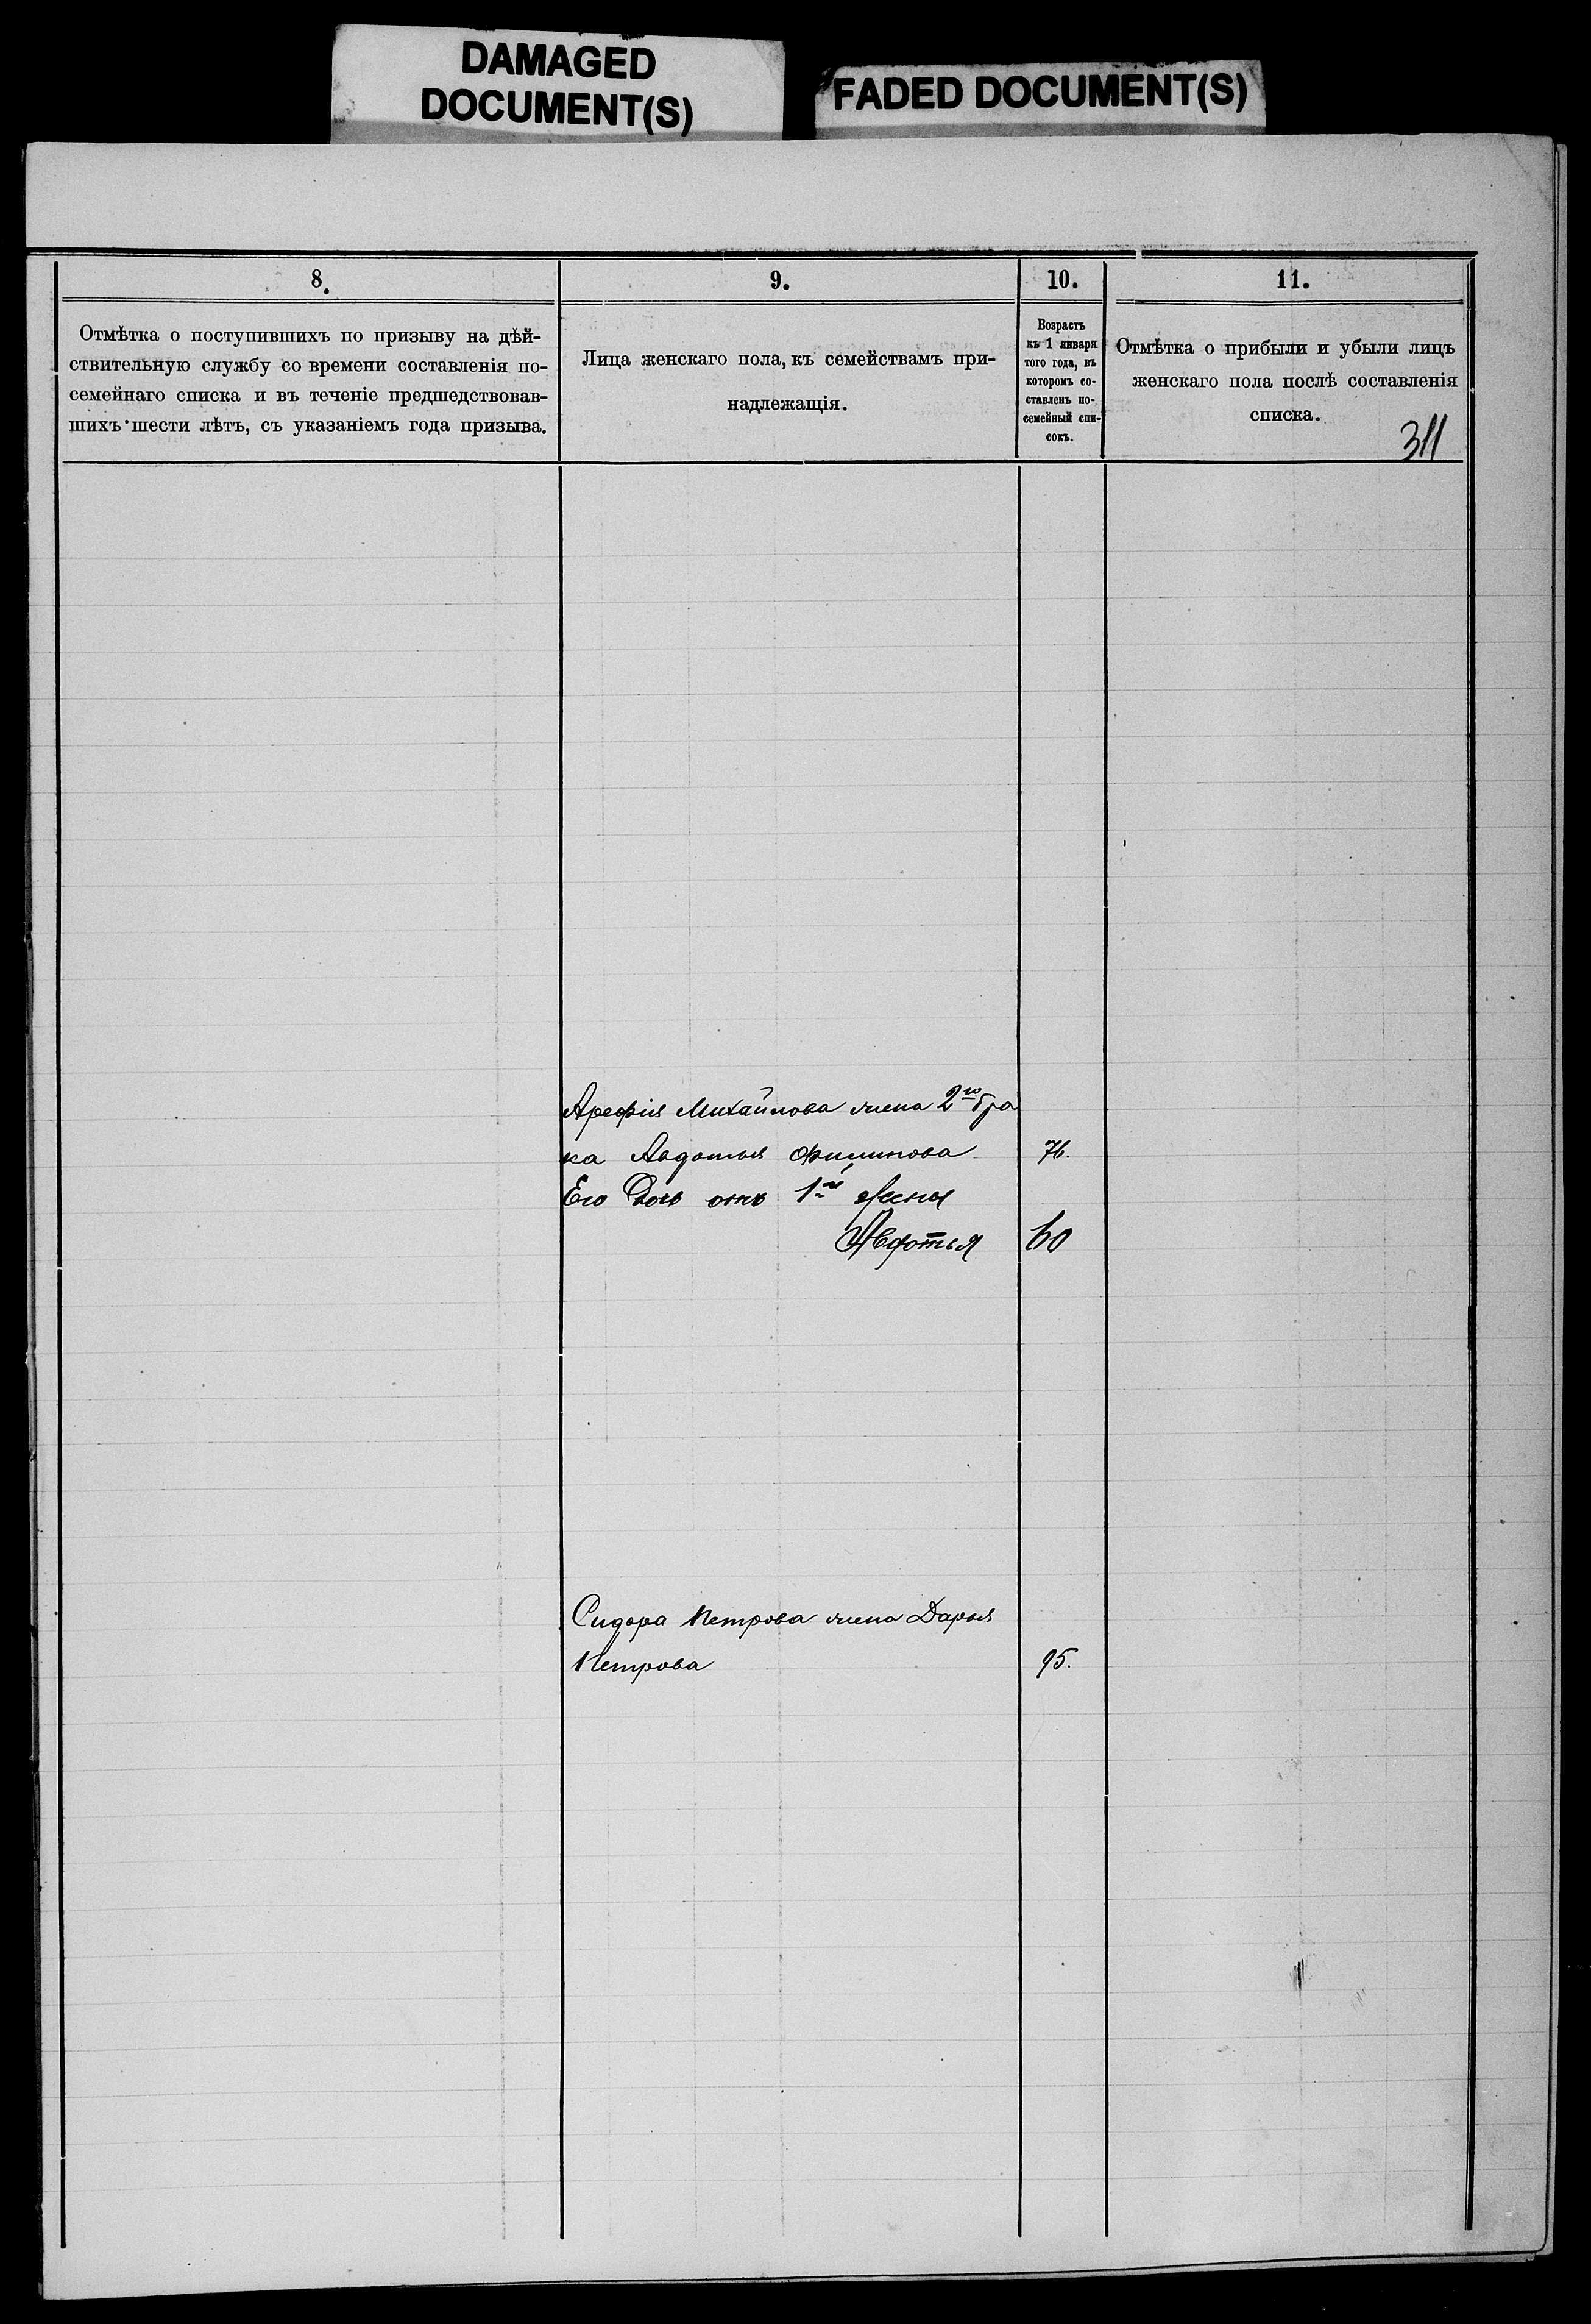 DAMAGED
DOCUMENT(S)
FADED DOCUMENT(S)
8.
9.
10.
11.
Отмѣтка о поступившихъ по призыву на дѣй-
ствительную службу со времени составленія по-
семейнаго списка и въ теченіе предшедствовав-
шихъ шести лѣтъ, съ указаніемъ года призыва.
Лица женскаго пола, къ семействамъ при-
надлежащія.
Возрастъ
къ 1 января
того года, въ
которомъ со-
ставленъ по-
семейный спи-
сокъ.
Отмѣтка о прибыли и убыли лицъ
женскаго пола послѣ составленія
списка.
311
Арефія Михайлова жена 2го бра
ка Авдотья Филипова 76.
Его Дочь отъ 1й жены
Авдотья 60
Сидора Петрова жена Дарья
Петрова 95.